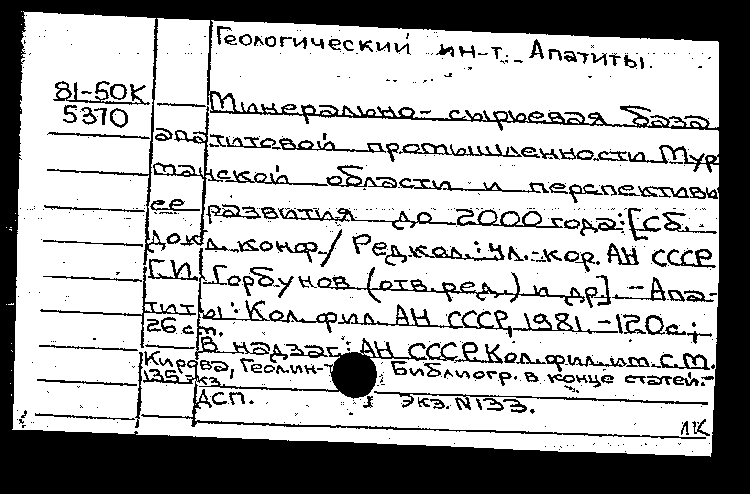 Геологический ин-т. Апатиты.
81-50К
5370
Минерально-сырьевая база
апатитовой промышленности Мур-
манской области и перспективы
ее развития до 2000 года: [Сб.
докл. конф. / Редкол.: чл.-кор. АН СССР
Г.И. Горбунов (отв. ред.) и др]. - Апа-
титы: Кол. фил. АН СССР, 1981. - 120 с.;
26 см.
В надзаг.: АН СССР. Кол. фил. им. С.М.
Кирова, Геол. ин-т Библиогр. в конце статей. -
135 экз.
ДСП. Экз. N133.
ЛК